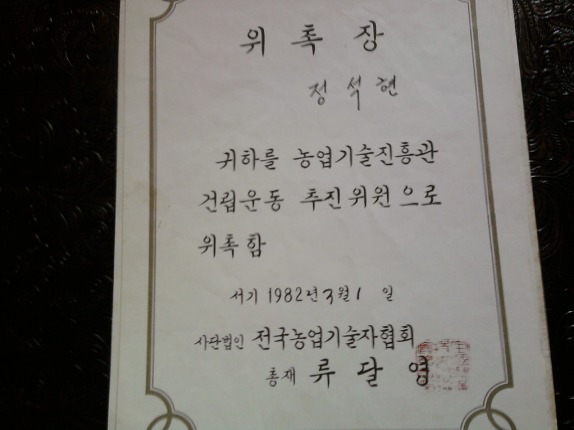 위 촉 장
정 석 현
귀하를 농업기술진흥관
건립운동 추진위원으로
위촉함
서기 1982년 3월 1 일
사단법인 전국농업기술자협회
총재 류 달 영